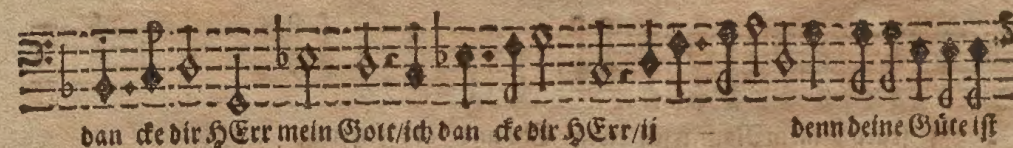 dan cke dir HErr mein Gott/ich dan cke dir HErr/ij denn deine Güte ist